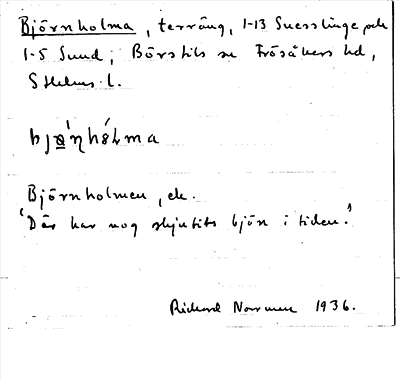 Björnholma, terräng, 1-13 Suesslinge och
1-5 Sund, Börstils sn Frösåkers hd,
Sthlms l.
bjǿηhólma
Björnholmen, ek.
'Där har nog skjutits björn i tiden.'
Rickard Norrman 1936.